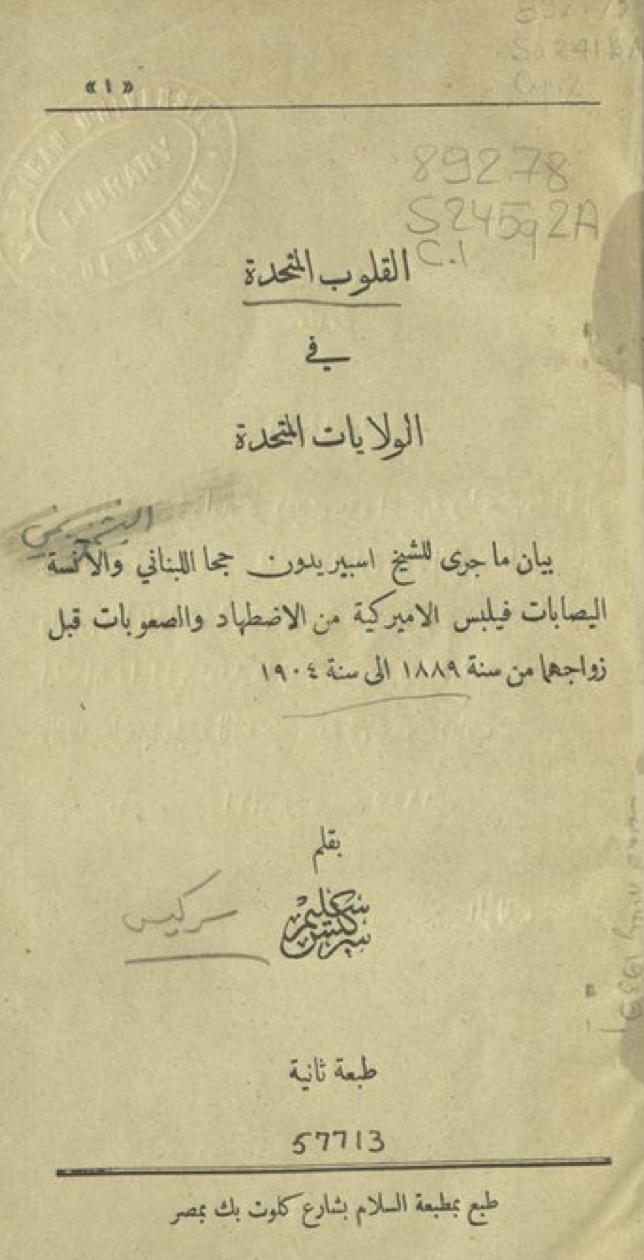 «١»
892.78
S245qA
C.1
القلوب المتحدة
في
الولايات المتحدة
بيان ما جرى للشيخ اسبيريدون جحا اللبناني والآنسة
اليصابات فيلبس الاميركية من الاضطهاد والصعوبات قبل
زواجهما من سنة ١٨٨٩ الى سنة ١٩٠٤
بقلم
سليم سركيس
سركيس
طبعة ثانية
57713
طبع بمطبعة السلام بشارع كلوت بك بمصر
LIBRARY
OF BEIRUT